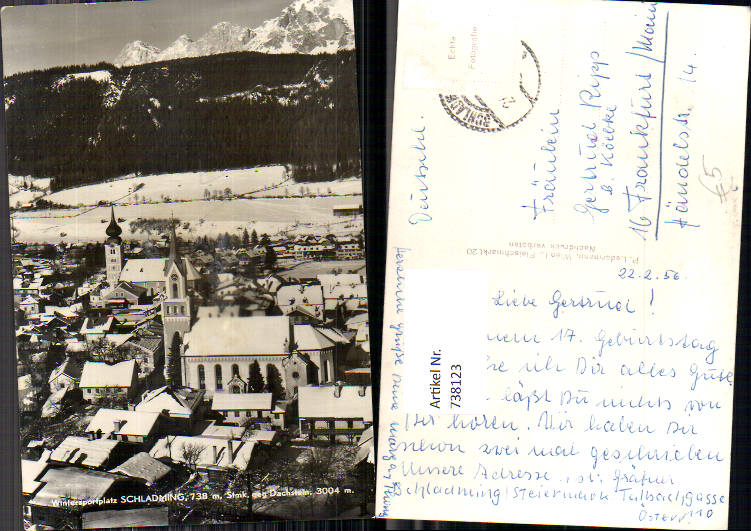 Wintersportplatz SCHLADMING, 738 m, Stmk. geg. Dachstein, 3004 m.
Echte
Fotografie
SCHLADMING
Deutschl.
Fräulein
Gertrud Ripp
b. Köllke
16 Frankfurt/Main
Händelstr. 14.
€5
P. Ledermann, Wien I., Fleischmarkt 20
Nachdruck verboten
22.2.56.
Liebe Gertrud!
17. Geburtstag
ich Dir alles Gute
läßt Du nichts von
Dir hören. Wir haben Dir
schon zwei mal geschrieben
Unsere Adresse
Schladming/Steiermark Tutbachgasse
Österr. 110
Herzliche Grüße Deine
Artikel Nr.
738123